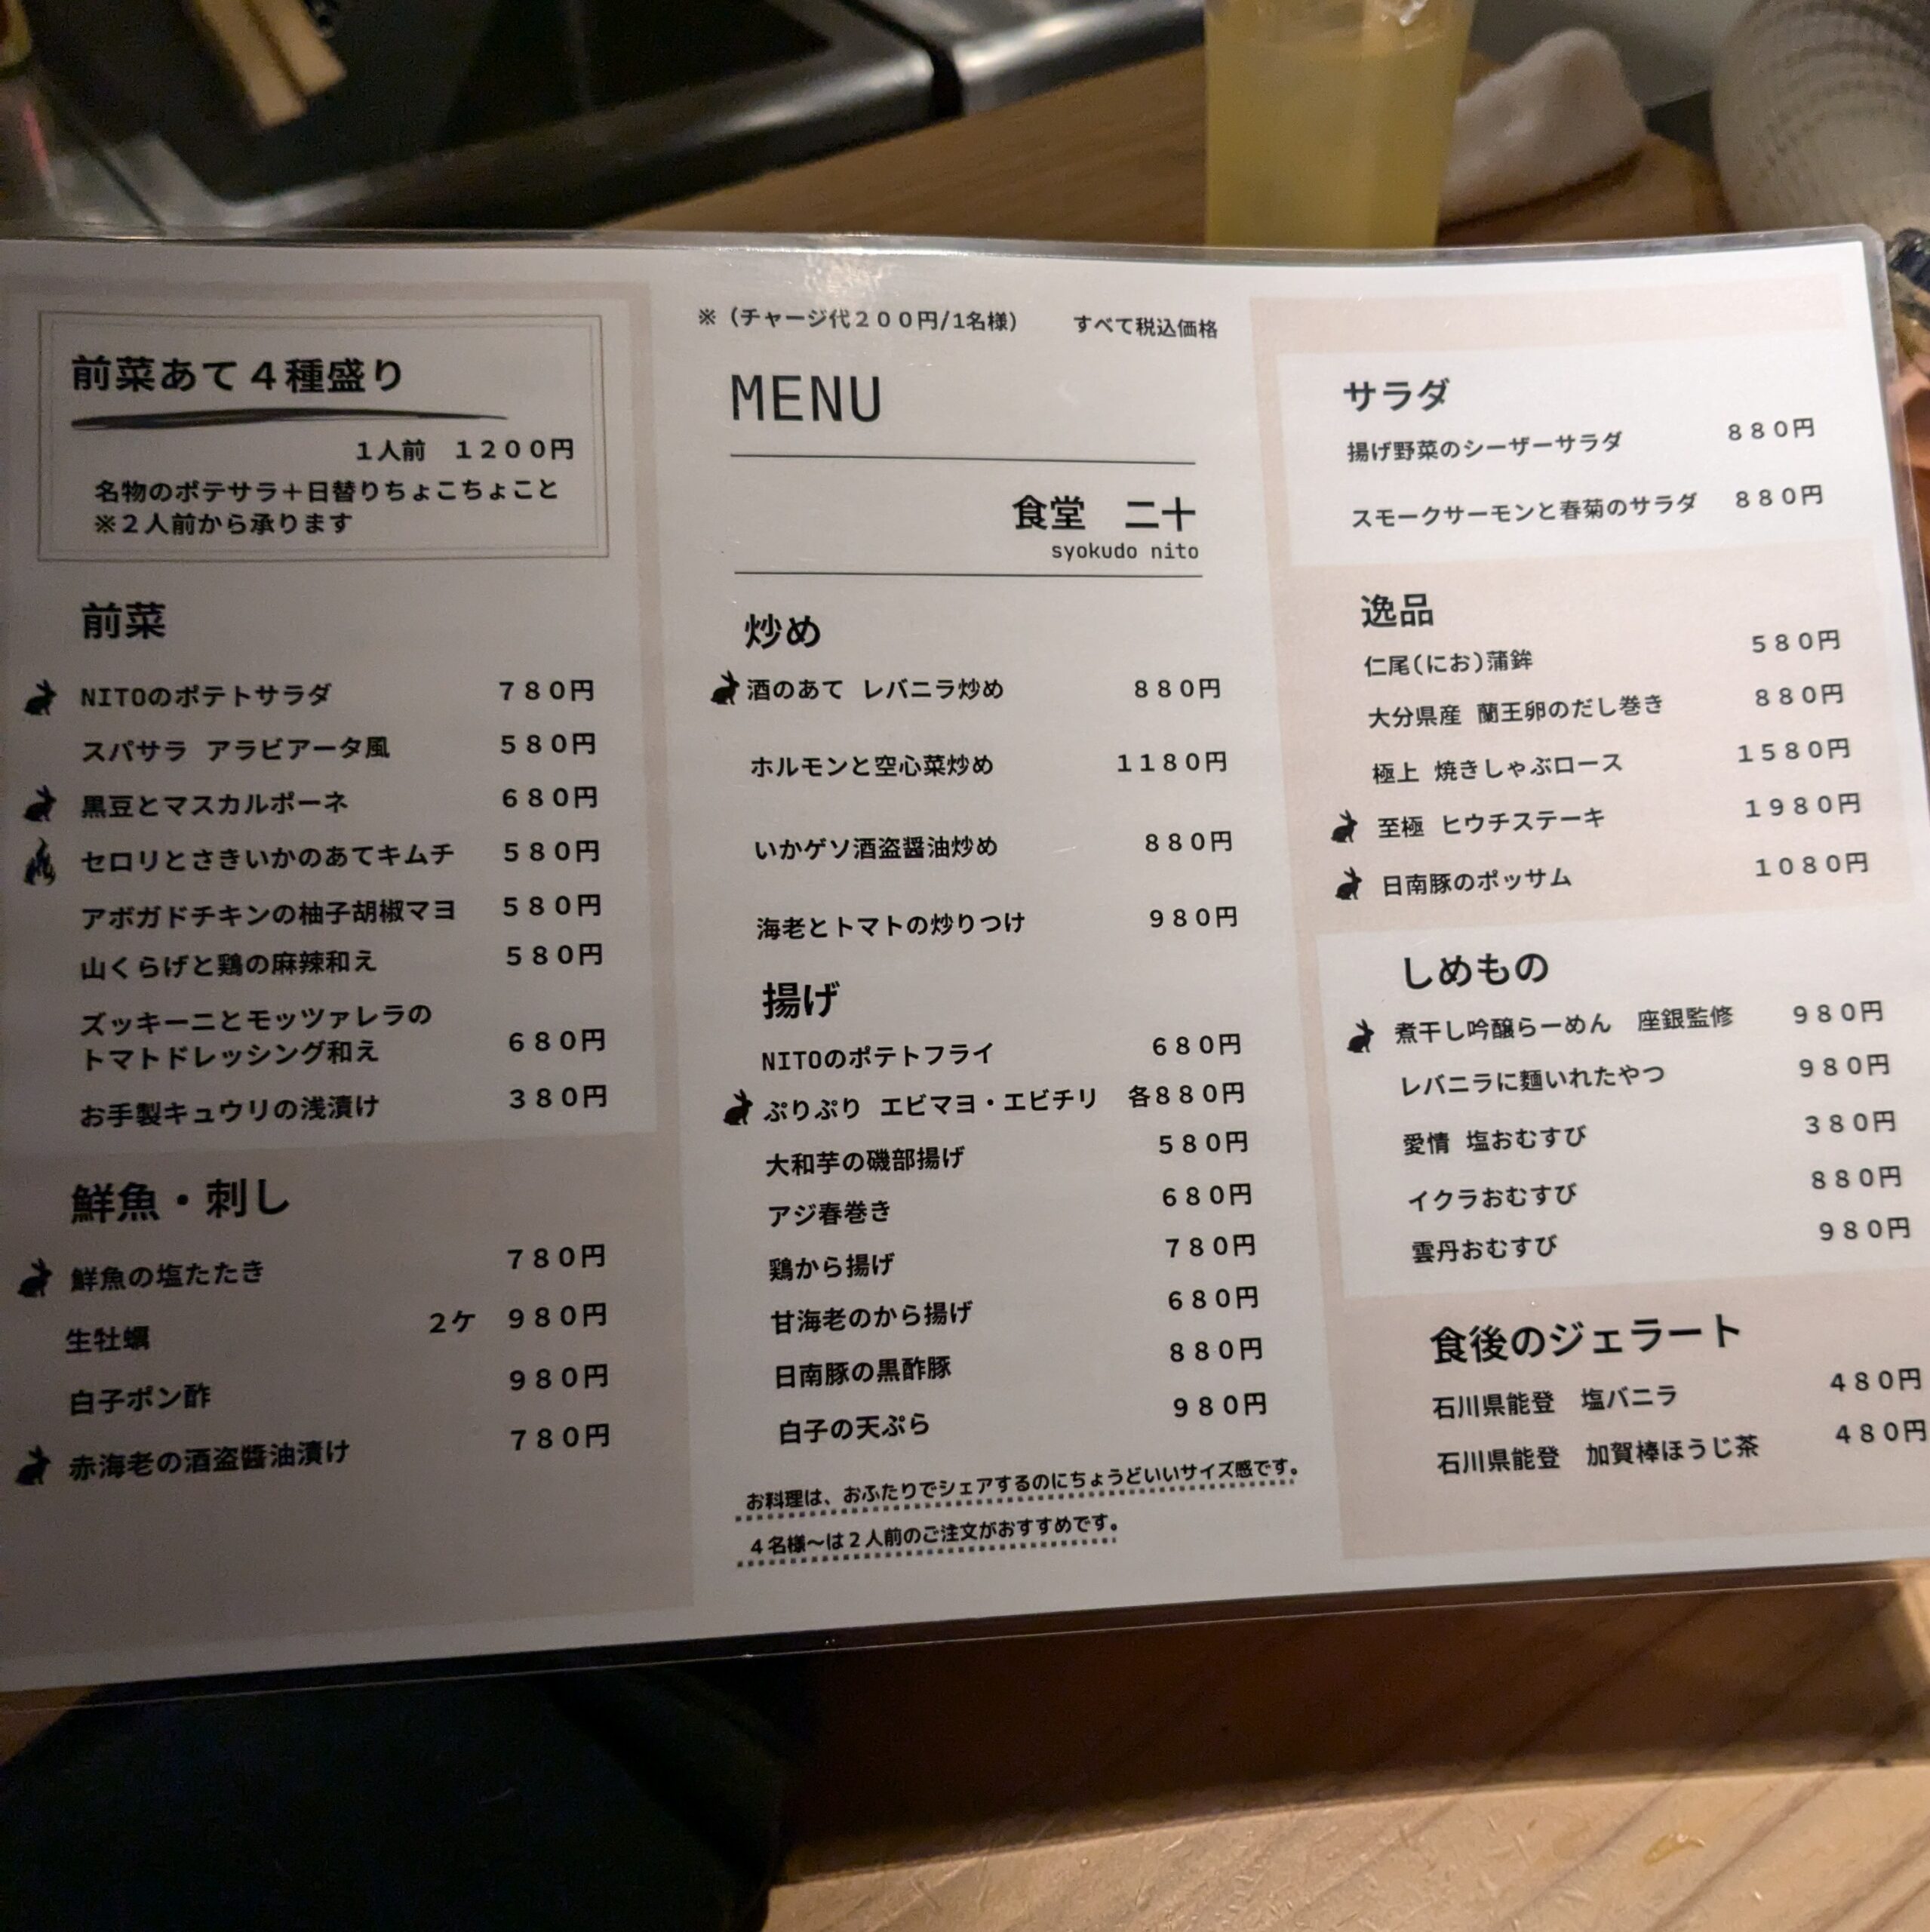 前菜あて４種盛り
１人前　１２００円
名物のポテサラ＋日替りちょこちょこと
※２人前から承ります
前菜
NITOのポテトサラダ　７８０円
スパサラ アラビアータ風　５８０円
黒豆とマスカルポーネ　６８０円
セロリとさきいかのあてキムチ　５８０円
アボガドチキンの柚子胡椒マヨ　５８０円
山くらげと鶏の麻辣和え　５８０円
ズッキーニとモッツァレラの
トマトドレッシング和え　６８０円
お手製キュウリの浅漬け　３８０円
鮮魚・刺し
鮮魚の塩たたき　７８０円
生牡蠣　２ケ　９８０円
白子ポン酢　９８０円
赤海老の酒盗醤油漬け　７８０円
※（チャージ代２００円/1名様）　すべて税込価格
MENU
食堂　二十
syokudo nito
炒め
酒のあて レバニラ炒め　８８０円
ホルモンと空心菜炒め　１１８０円
いかゲソ酒盗醤油炒め　８８０円
海老とトマトの炒りつけ　９８０円
揚げ
NITOのポテトフライ　６８０円
ぷりぷり エビマヨ・エビチリ　各８８０円
大和芋の磯部揚げ　５８０円
アジ春巻き　６８０円
鶏から揚げ　７８０円
甘海老のから揚げ　６８０円
日南豚の黒酢豚　８８０円
白子の天ぷら　９８０円
お料理は、おふたりでシェアするのにちょうどいいサイズ感です。
４名様～は２人前のご注文がおすすめです。
サラダ
揚げ野菜のシーザーサラダ　８８０円
スモークサーモンと春菊のサラダ　８８０円
逸品
仁尾(にお)蒲鉾　５８０円
大分県産 蘭王卵のだし巻き　８８０円
極上 焼きしゃぶロース　１５８０円
至極 ヒウチステーキ　１９８０円
日南豚のポッサム　１０８０円
しめもの
煮干し吟醸らーめん　座銀監修　９８０円
レバニラに麺いれたやつ　９８０円
愛情 塩おむすび　３８０円
イクラおむすび　８８０円
雲丹おむすび　９８０円
食後のジェラート
石川県能登　塩バニラ　４８０円
石川県能登　加賀棒ほうじ茶　４８０円